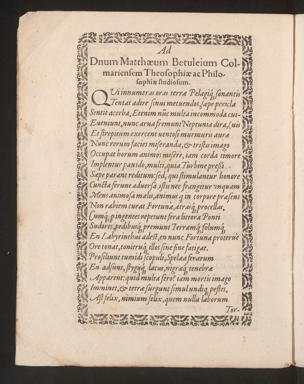 Ad
Dnum Matthæum Betuleium Col-
mariensem Theosophiæ ac Philo-
sophiæ studiosum.
Qui innumeras oras terræ Pelagiq; sonantis
Tentat adire sinus metuendos, sæpe pericla
Sentit acerba, Etenim núc multa incommoda cui-
Eveniunt, nunc arva fremunt Neptunia dira, sui
Et strepitum exercent ventosi murmura auræ
Nunc rerum facies miseranda, & tristis imago
Occupat horum animos miseré, iam corda timore
Implentur pavido, multi, quia Turbine pressi
Sæpe parant reditum: sed, qui stimulantur honore
Cuncta ferunt adversa istis nec frangitur unquam
Mens animosa malis, animus q́ in corpore præsens
Non rabiem curat Fortunæ, atrasq́; procellas,
Cumq́; pingentes repetunt fera littora Ponti
Sudores, pedibusq́; premunt Terramq́; solumq́;
En Labyrinthus adest, en nunc Fortuna protervè
Ore tonat, tonitruq́; illos sine fine fatigat.
Prosiliunt tumidi scopuli, Spelæa ferarum
En adsunt, stygiiq́; lacus, nigræq́; tenebræ
Apparent: quid multa fero? iam mortis imago
Imminet, & tetræ surgunt simul undiq; pestes,
Ast felix, nimium felix, quem nulla laborum
Tor-